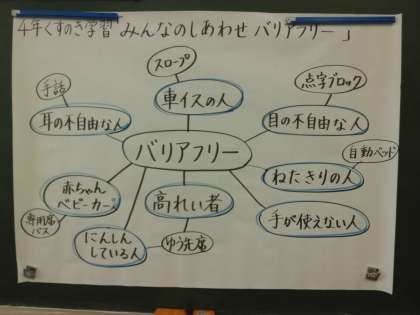 4年くすのき学習「みんなのしあわせ バリアフリー」
スロープ
手話
点字ブロック
車イスの人
耳の不自由な人
目の不自由な人
自動ベッド
バリアフリー
ねたきりの人
赤ちゃん
ベビーカー
高れい者
専用席
バス
手が使えない人
にんしん
している人
ゆう先席